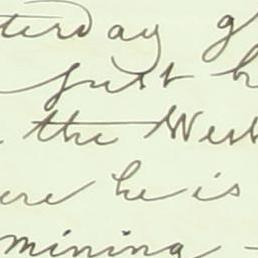 terday g
just h
the West
ere he is
mining